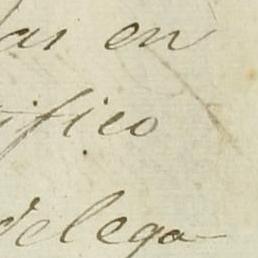 as en
ifico
delega